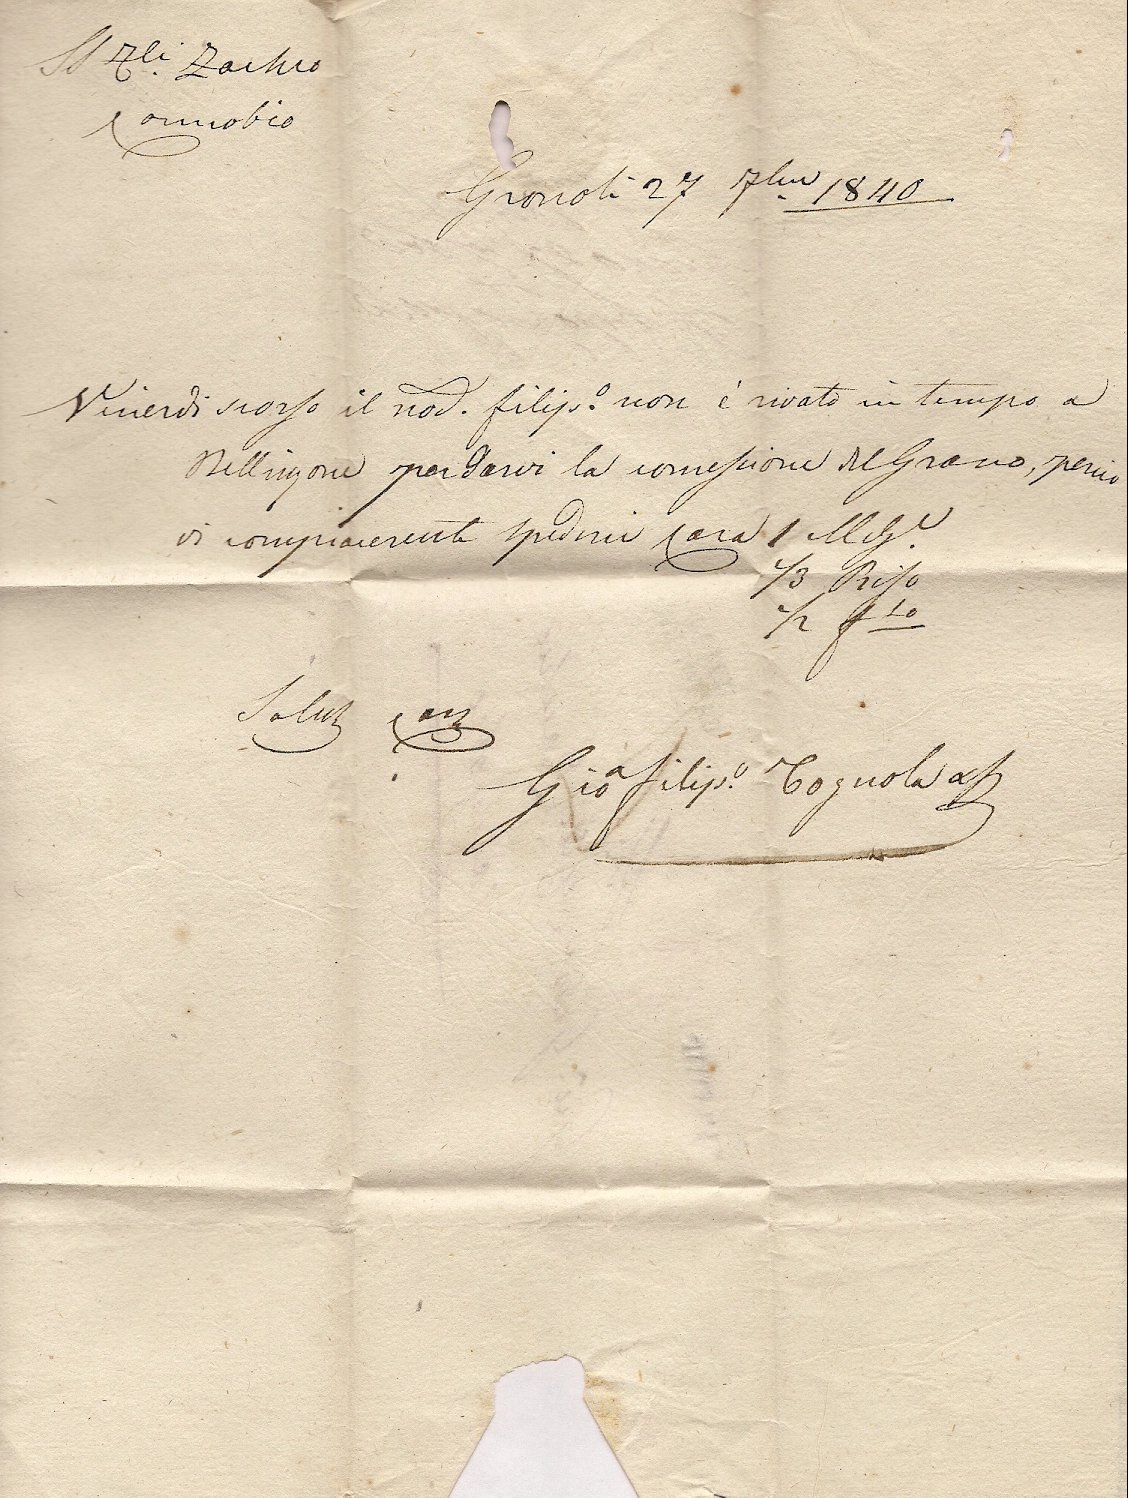 SS Fli Zacheo
Cannobio
Gronoli 27 7bre 1840
Vinerdi scorso il nod. filip.o non è rivato in tempo a
Bellinzone per darvi la comessione del Grano, percio
vi compiacerete spedirci Cara 1 Mg.e
1/3 Riso
1/2 fto
Salut Carz
Gioa filip.o Tognola